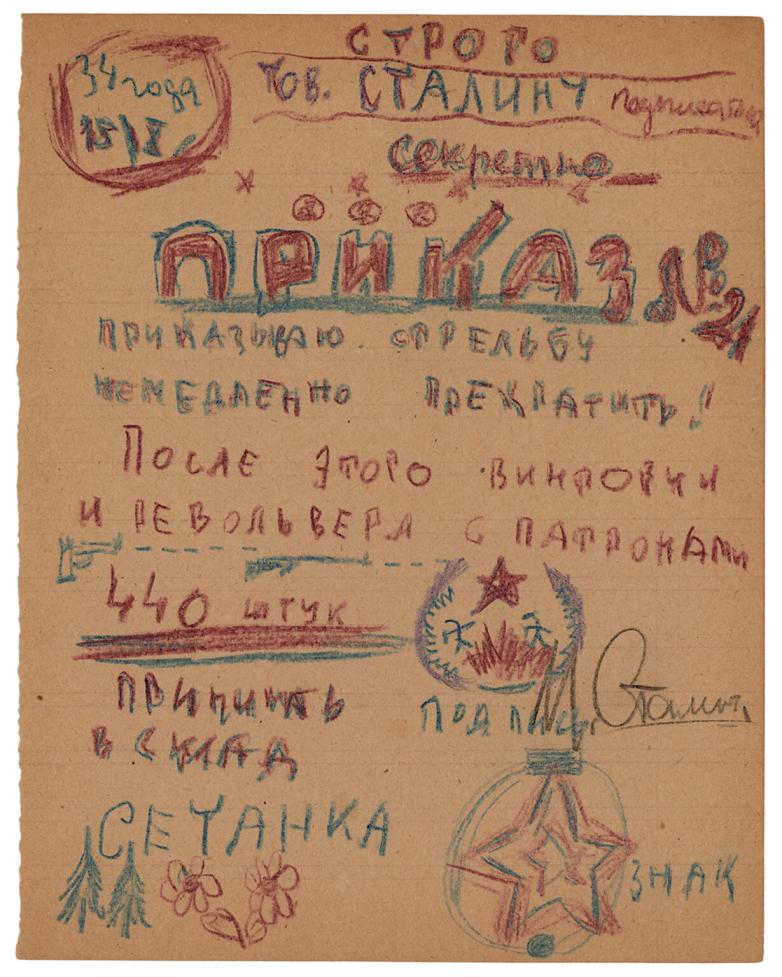 СТРОГО
34 года
15/X
Тов. СТАЛИНУ
Секретно
ПРИКАЗ №21
ПРИКАЗЫВАЮ СТРЕЛЬБУ
НЕМЕДЛЕННО ПРЕКРАТИТЬ!
ПОСЛЕ ЭТОГО ВИНТОВКИ
И РЕВОЛЬВЕРА С ПАТРОНАМИ
440 ШТУК
В СКЛАД
ПОДПИСЬ
И. Сталин.
СЕТАНКА
ЗНАК